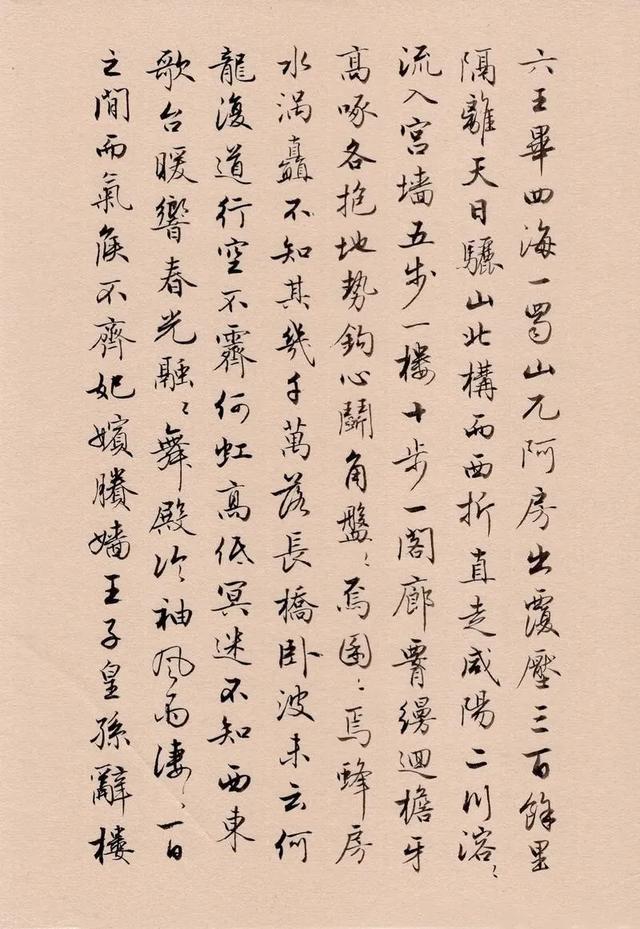 六王畢四海一蜀山兀阿房出覆壓三百餘里
隔離天日驪山北構而西折直走咸陽二川溶〻
流入宮墻五步一樓十步一閣廊腰縵迴檐牙
高啄各抱地勢鈎心鬭角盤〻焉囷〻焉蜂房
水渦矗不知其幾千萬落長橋卧波未云何
龍復道行空不霽何虹高低冥迷不知西東
歌台暖響春光融〻舞殿冷袖風雨凄〻一日
之間而氣候不齊妃嬪媵嬙王子皇孫辭樓